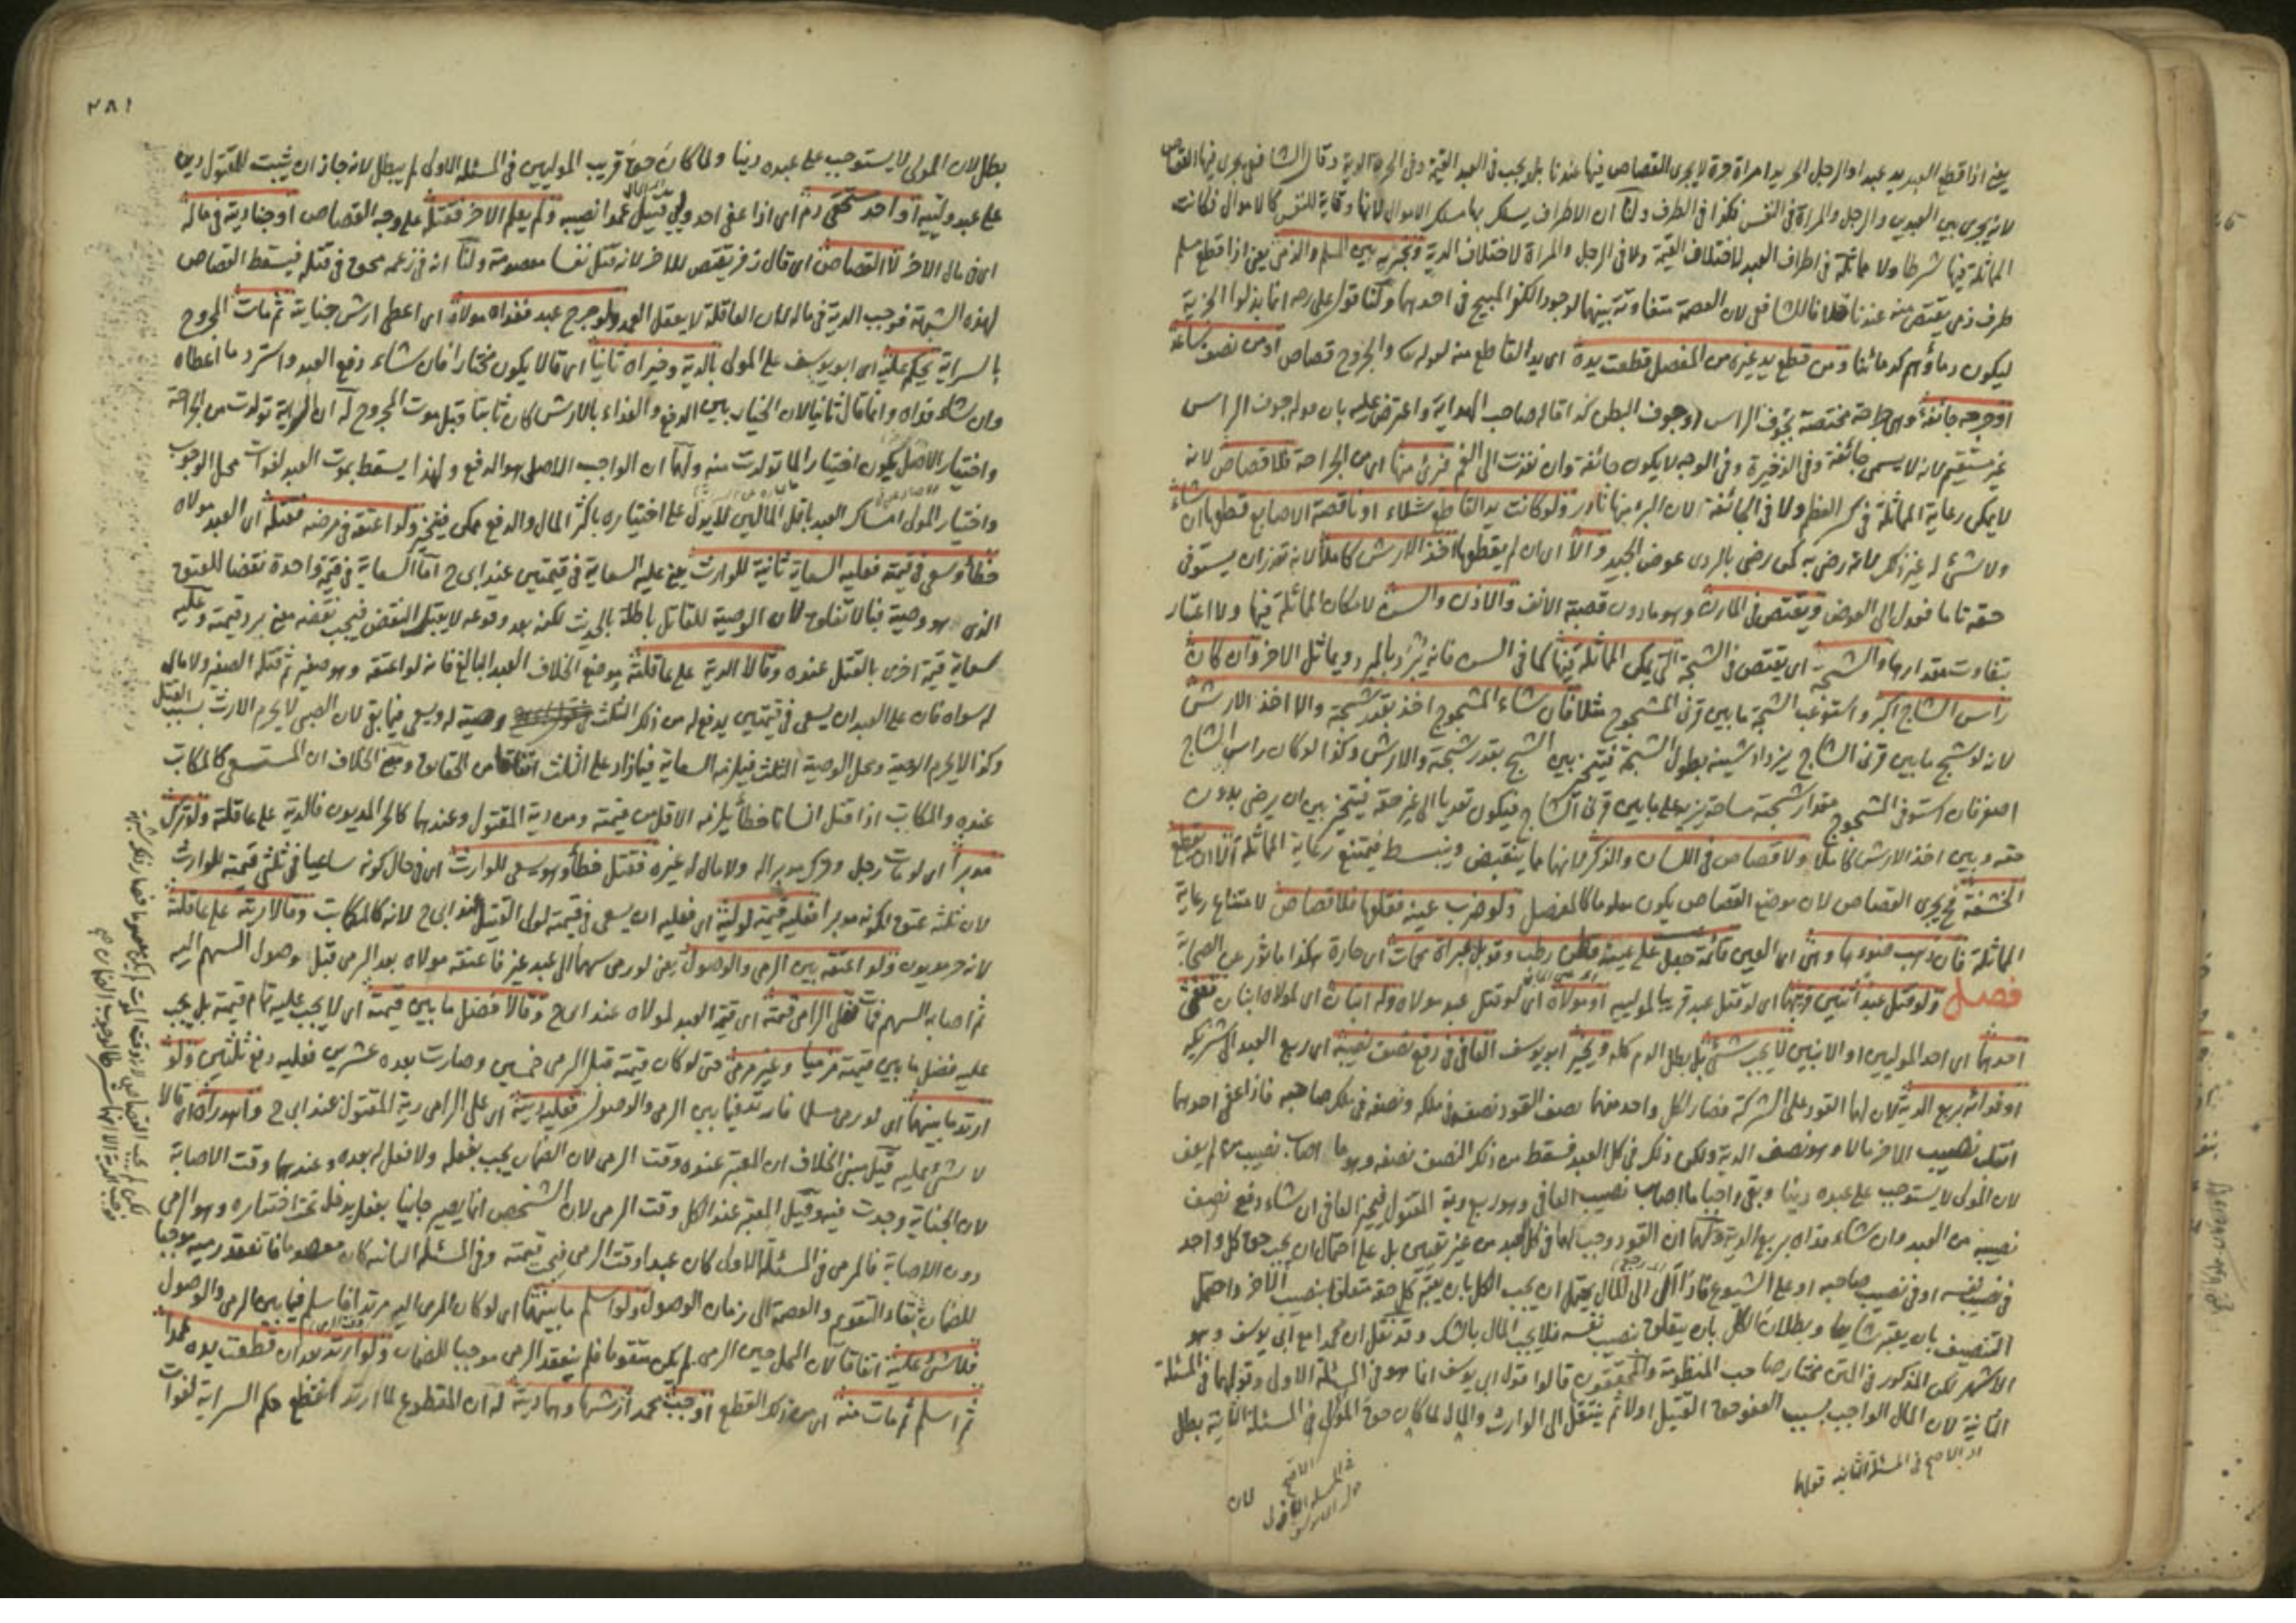 يعنى اذا قطع العبد يد عبد او الرجل الحر يد امراة حرة لا يجرى القصاص فيها عندنا بل يجب فى العبد القيمة وفى الحرة الدية وقال الشافعى يجرى فيها القصاص
لانه يجرى بين العبدين والرجل والمراة فى النفس فكذا فى الطرف ولنا ان الاطراف يسلك بها مسلك الاموال لانها وقاية للنفس كالاموال فكانت
المماثلة فيها شرطا ولا مماثلة فى اطراف العبد لاختلاف القيمة ولا فى الرجل والمراة لاختلاف الدية ونجريه بين المسلم والذمى يعنى اذا قطع مسلم
طرف ذمى يقتص منه عندنا خلافا للشافعى لان العصمة متفاوتة بينهما لوجود الكفر المبيح فى احدهما ولنا قول على رضه انما بذلوا الجزية
ليكون دماؤهم كدمائنا ومن قطع يد غيره من المفصل قطعت يده اى يد القاطع منه لقوله تعا والجروح قصاص او من نصف ساعد
او جرحه جائفة وهى جراحة مختصة بجوف الراس او جوف البطن كذا قاله صاحب الهداية واعترض عليه بان قوله جوف الراس
غير مستقيم لانه لا يسمى جائفة وفى الذخيرة وفى الوجه لا يكون جائفة وان نفذت الى الفم فبرئ منها اى من الجراحة فلا قصاص لانه
لا يمكن رعاية المماثلة فى كسر العظم ولا فى الجائفة لان البرء منها نادر ولو كانت يد القاطع شلاء او ناقصة الاصابع قطعها ان شاء
ولا شئ له غير ذلك لانه رضى به كمن رضى بالردى عوض الجيد والا اى ان لم يقطعها اخذ الارش كاملا لانه تعذر ان يستوفى
حقه تاما فعدل الى العوض ويقتص فى المارن وهو ما دون قصبة الانف والاذن والسن لامكان المماثلة فيها ولا اعتبار
بتفاوت مقدارها والشجة اى يقتص فى الشجة التى يمكن المماثلة فيها كما فى السن فانه يبرد بالمبرد ويماثل الاخر وان كان
راس الشاج اكبر واستوعب الشجة ما بين قرنى المشجوج مثلا فان شاء المشجوج اخذ بقدر شجته والا اخذ الارش
لانه لو شج ما بين قرنى الشاج يزداد شينه بطول الشجة فيتخير بين الشج بقدر شجته والارش وكذا لو كان راس الشاج
اصغر فان استوفى المشجوج مقدار شجته مساحة يزيد على ما بين قرنى الشاج فيكون تعديا الى غير حقه فيتخير بين ان يرضى بدون
حقه وبين اخذ الارش كاملا ولا قصاص فى اللسان والذكر لانهما مما ينقبض وينبسط فيمتنع رعاية المماثلة الا ان يقطع
الحشفة فح يجرى القصاص لان موضع القصاص يكون معلوما كالمفصل ولو ضرب عينه فقلعها فلا قصاص لامتناع رعاية
المماثلة فان ذهب ضوءها وهى اى العين قائمة جعل على عينه قطن رطب وقوبل بمراة محماة اى حارة هكذا ماثور عن الصحابة
فصل ولو قتل عبد اثنين قريبهما اى لو قتل عبد قريبا لموليه او مولاه اى لو قتل عبد مولاه وله ابنان اى لمولاه ابنان فعفى
احدهما اى احد الموليين او الابنين لا يجب شئ بل بطل الدم كله ويخير ابو يوسف العافى فى دفع نصف نصيبه اى ربع العبد الى شريكه
او فدائه بربع الدية لان لهما القود على الشركة فصار لكل واحد منهما نصف القود نصفه فى ملكه ونصفه فى ملك صاحبه فاذا عفى احدهما
انقلب نصيب الاخر مالا وهو نصف الدية ولكن ذلك فى كل العبد فسقط من ذلك النصف نصفه وهو ما اصاب نصيب من لم يعف
لان المولى لا يستوجب على عبده دينا وبقى واجبا ما اصاب نصيب العافى وهو ربع دية المقتول فيخير العافى ان شاء دفع نصف
نصيبه من العبد وان شاء فداه بربع الدية ولهما ان القود وجب لهما فى كل العبد من غير تعيين بل على احتمال ان يجب حق كل واحد
فى نصيب نفسه او فى نصيب صاحبه او على الشيوع فاذا آل الى المال يحتمل ان يجب الكل بان يعتبر كل حقه متعلقا بنصيب الاخر واحتمل
التنصيف بان يعتبر شايعا وبطلان الكل بان يتعلق بنصيب نفسه فلا يجب المال بالشك وقد نقل ان محمدا مع ابى يوسف وهو
الاشهر لكن المذكور فى المتن مختار صاحب المنظومة والمحققون قالوا قول ابى يوسف انما هو فى المسئلة الاولى وقولهما فى المسئلة
الثانية لان المال الواجب بسبب العفو حق القتيل اولا ثم ينتقل الى الوارث والمال لما كان حق المولى فى المسئلة الثانية بطل
لان
٢٨١
بطل لان المولى لا يستوجب على عبده دينا ولما كان حق قريب الموليين فى المسئلة الاولى لم يبطل لانه جاز ان يثبت للمقتول دين
على عبد وليه او احد مستحقى دم اى اذا عفى احد وليى قتيل عمدا نصيبه ولم يعلم الاخر فقتله على وجه القصاص اوجبنا دية فى ماله
اى فى مال الاخر لا القصاص اى قال زفر يقتص للاخر لانه قتل نفسا معصومة ولنا انه فى زعمه محق فى قتله فيسقط القصاص
لهذه الشبهة فوجب الدية فى ماله لان العاقلة لا يعقل العمد ولو جرح عبد ففداه مولاه اى اعطى ارش جناية ثم مات المجروح
بالسراية يحكم عليه اى ابو يوسف على المولى بالدية وخيراه ثانيا اى قالا يكون مختارا فان شاء دفع العبد واسترد ما اعطاه
وان شاء فداه وانما قال ثانيا لان الخيار بين الدفع والفداء بالارش كان ثابتا قبل موت المجروح له ان السراية تولدت من الجراحة
واختيار الاصل يكون اختيار الما تولدت منه ولهما ان الواجب الاصلى هو الدفع ولهذا يسقط بموت العبد لفوات محل الوجوب
واختيار المولى امساك العبد باقل المالين لا يدل على اختياره باكثر المال والدفع ممكن فيتخير ولو اعتقه فى مرضه فقتله اى العبد مولاه
خطأ وسعى فى قيمته فعليه السعاية ثانية للوارث يعنى عليه السعاية فى قيمتين عند ابى ح اما السعاية فى قيمة واحدة نقضا للعتق
الذى هو وصية فبالاتفاق لان الوصية للقاتل باطلة بالحديث لكنه بعد وقوعه لا يقبل النقض فيجب نقضه معنى برد قيمته وعليه
سعاية قيمة اخرى بالقتل عنده وقالا الدية على عاقلته موضع الخلاف العبد البالغ فانه لو اعتقه وهو صغير ثم قتله الصغير ولا مال
له سواه فان على العبد ان يسعى فى قيمتين يدفع له من ذلك الثلث وصية له ويسعى فيما بقى لان الصبى لا يحرم الارث بسبب القتل
وكذا لا يحرم الوصية ومحل الوصية الثلث فيلزمه السعاية فيما زاد على الثلث اتفاقا من الحقائق ومبنى الخلاف ان المستسعى كالمكاتب
عنده والمكاتب اذا قتل انسانا خطأ يلزمه الاقل من قيمته ومن دية المقتول وعندهما كالحر المديون فالدية على عاقلته ولو ترك
مدبرا اى لو مات رجل وترك مدبرا له ولا مال له غيره فقتل خطأ وهو يسعى للوارث اى فى حال كونه ساعيا فى ثلثى قيمته للوارث
لان ثلثه عتق لكونه مدبرا فعليه قيمة لوليه اى فعليه ان يسعى فى قيمته لولى القتيل عند ابى ح لانه كالمكاتب وقالا دية على عاقلته
لانه حر مديون ولو اعتقه بين الرمى والوصول يعنى لو رمى سهما الى عبد غيره فاعتقه مولاه بعد الرمى قبل وصول السهم اليه
ثم اصابه السهم فمات فعلى الرامى قيمته اى قيمة العبد لمولاه عند ابى ح وقالا فضل ما بين قيمته اى لا يجب عليه تمام قيمته بل يجب
عليه فضل ما بين قيمته مرميا وغير مرمى حتى لو كان قيمته قبل الرمى خمسين وصارت بعده عشرين فعليه دفع ثلثين ولو
ارتد ما بينهما اى لو رمى مسلما فارتد فيما بين الرمى والوصول فعليه دية اى على الرامى دية المقتول عند ابى ح واهدراه اى قالا
لا شئ عليه قيل مبنى الخلاف ان المعتبر عنده وقت الرمى لان الضمان يجب بفعله ولا فعل له بعده وعندهما وقت الاصابة
لان الجناية وجدت فيه وقيل المعتبر عند الكل وقت الرمى لان الشخص انما يصير جانيا بفعل يدخل تحت اختياره وهو الرمى
دون الاصابة فالمرمى فى المسئلة الاولى كان عبدا وقت الرمى فيجب قيمته وفى المسئلة الثانية كان معصوما فانعقد رميه موجبا
للضمان بقاء التقوم والعصمة الى زمان الوصول ولو اسلم ما بينهما اى لو كان المرمى اليه مرتدا فاسلم فيما بين الرمى والوصول
فلا شئ عليه اتفاقا لان المحل حين الرمى لم يكن متقوما فلم ينعقد الرمى موجبا للضمان ولو ارتد بعد ان قطعت يده عمدا
ثم اسلم ثم مات منه اى من ذلك القطع اوجب محمد ارشها وهما دية له ان المقطوع لما ارتد انقطع حكم السراية لفوات